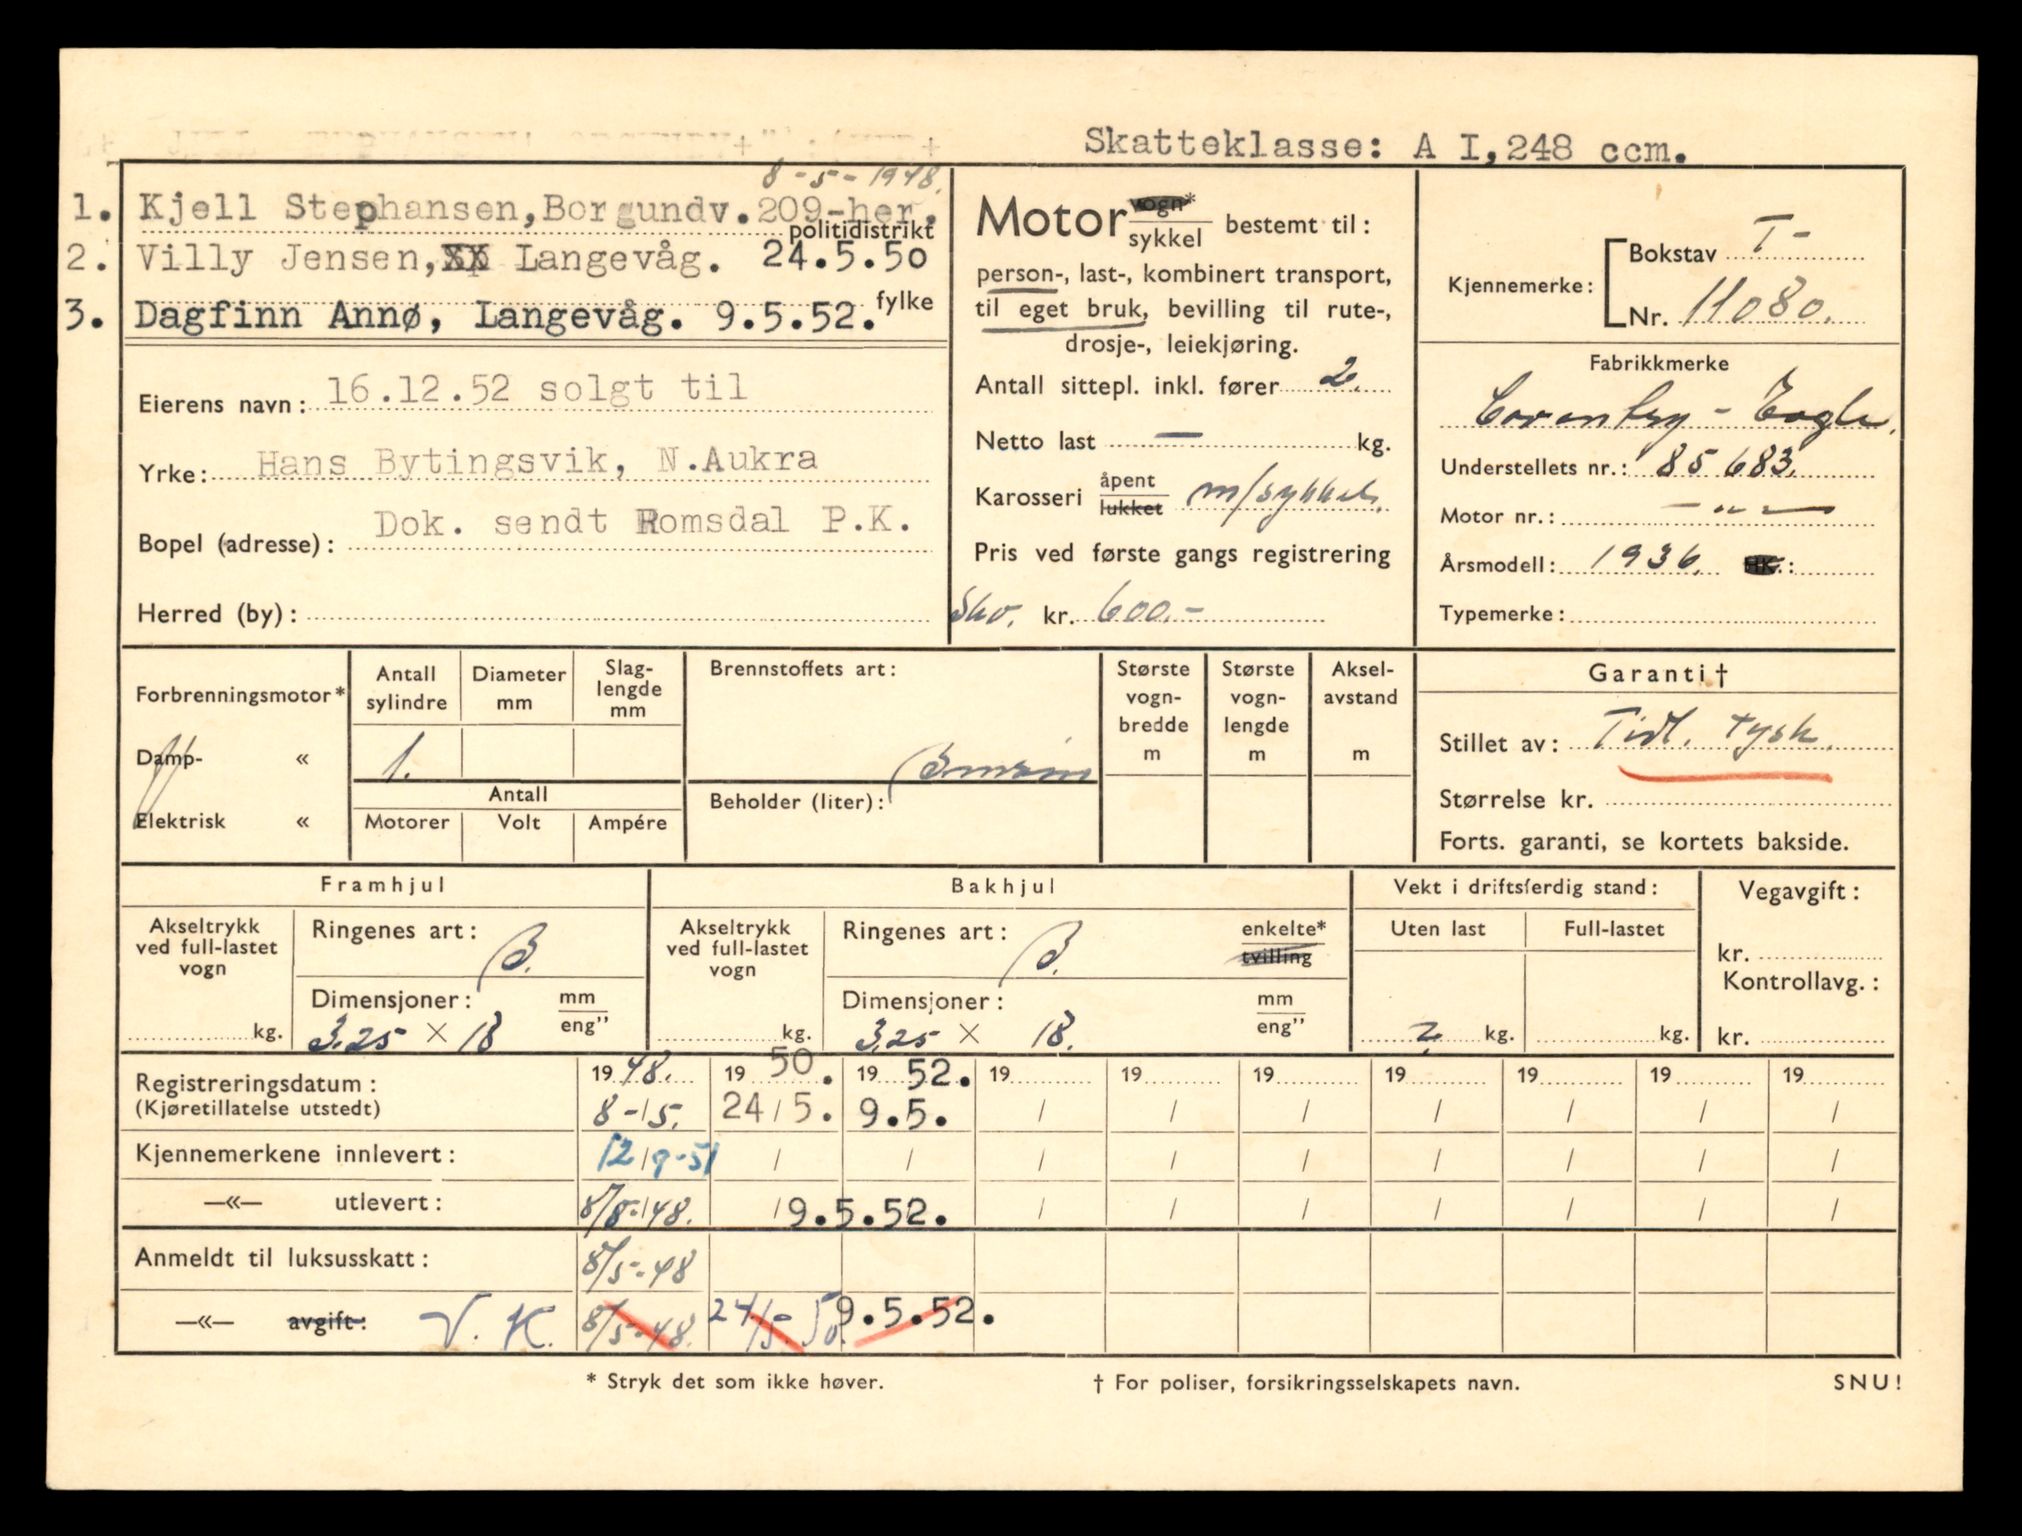 Skatteklasse: A I,248 ccm.
8-5-1948.
1. Kjell Stephansen,Borgundv.209-her.
politidistrikt
2. Villy Jensen,XX Langevåg. 24.5.50
fylke
3. Dagfinn Annø, Langevåg. 9.5.52.
Eierens navn: 16.12.52 solgt til
Yrke: Hans Bytingsvik, N.Aukra
Bopel (adresse): Dok. sendt Romsdal P.K.
Herred (by):
Motor vogn* sykkel bestemt til:
person-, last-, kombinert transport,
til eget bruk, bevilling til rute-,
drosje-, leiekjøring.
Antall sittepl. inkl. fører 2.
Netto last — kg.
Karosseri åpent lukket m/sykkel.
Pris ved første gangs registrering
Skv. kr. 600.-
Kjennemerke: Bokstav T-
Nr. 11080.
Fabrikkmerke
Coventry - Eagle.
Understellets nr.: 85683.
Motor nr.: -"-
Årsmodell: 1936. HK.:
Typemerke:
Forbrenningsmotor*
Damp- «
Elektrisk «
Antall sylindre
Diameter mm
Slag-lengde mm
1.
Antall
Motorer Volt Ampére
Brennstoffets art:
Bensin
Beholder (liter):
Største vogn-bredde m
Største vogn-lengde m
Aksel-avstand m
Garanti†
Stillet av: Tidl. tysk.
Størrelse kr.
Forts. garanti, se kortets bakside.
Framhjul
Akseltrykk ved full-lastet vogn
kg.
Ringenes art: B.
Dimensjoner: mm eng"
3.25 × 18
Bakhjul
Akseltrykk ved full-lastet vogn
kg.
Ringenes art: B. enkelte* tvilling
Dimensjoner: mm eng"
3.25 × 18.
Vekt i driftsferdig stand:
Uten last Full-lastet
? kg. kg.
Vegavgift:
kr.
Kontrollavg.:
kr.
Registreringsdatum: 1948. 1950. 1952. 19 19 19 19 19 19 19
(Kjøretillatelse utstedt) 8-/5. 24/5. 9.5. / / / / / / /
Kjennemerkene innlevert: 12/9-51 / / / / / / / / /
—«— utlevert: 8/5-/48. /9.5.52. / / / / / / /
Anmeldt til luksusskatt: 8/5-48
—«— avgift: V. K. 8/5-48. 24/5-50. 9.5.52.
* Stryk det som ikke høver.
† For poliser, forsikringsselskapets navn.
SNU!